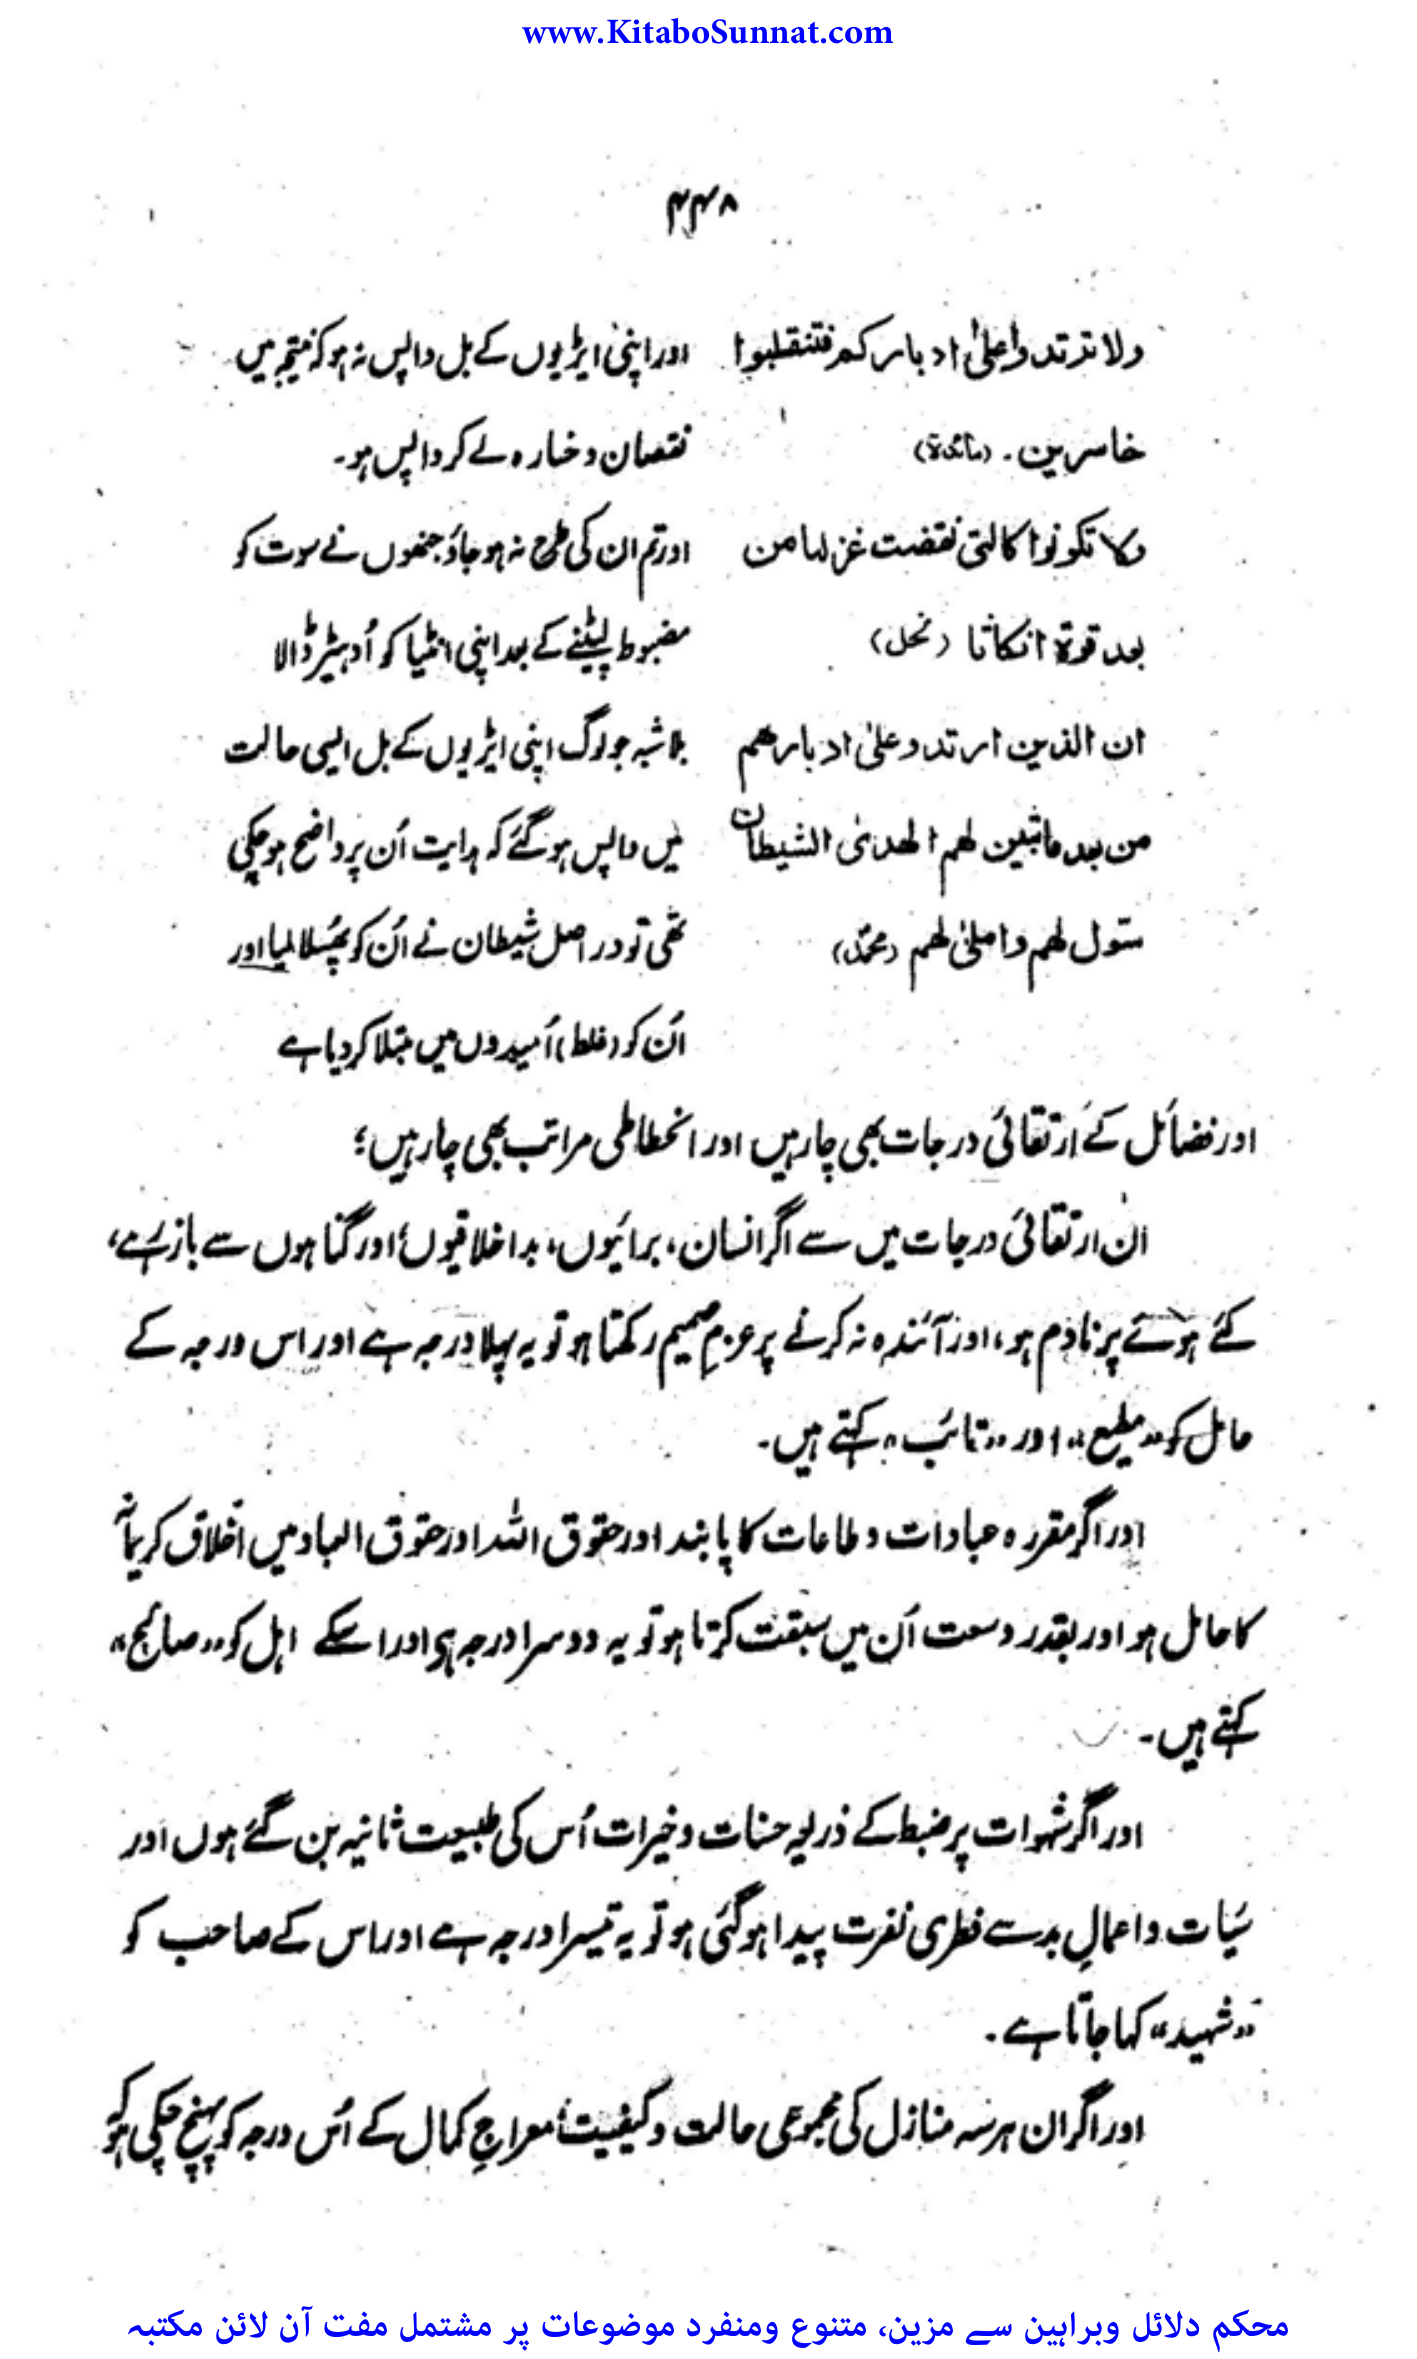 www.KitaboSunnat.com
۴۴۸
ولا ترتدوا علیٰ ادبارکم فتنقلبوا اور اپنی ایڑیوں کے بل واپس نہ ہو کہ نتیجہ میں
خاسرین۔ (مائدۃ) نقصان و خسارہ لے کر واپس ہو۔
ولا تکونوا کالتی نقضت غزلها من اور تم ان کی طرح نہ ہو جاؤ جنھوں نے سوت کو
بعد قوۃ انکاثا (نحل) مضبوط لپیٹنے کے بعد اپنی انٹیا کو اُدہیڑ ڈالا
ان الذین ارتدوا علیٰ ادبارهم بلاشبہ جو لوگ اپنی ایڑیوں کے بل ایسی حالت
من بعد ما تبین لهم الهدیٰ الشیطان میں واپس ہو گئے کہ ہدایت اُن پر واضح ہو چکی
سوّل لهم واملیٰ لهم (محمّد) تھی تو در اصل شیطان نے اُن کو پھُسلا لیا اور
اُن کو (غلط) اُمیدوں میں مبتلا کر دیا ہے
اور فضائل کے ارتقائی درجات بھی چار ہیں اور انحطاطی مراتب بھی چار ہیں؛
ان ارتقائی درجات میں سے اگر انسان، برائیوں، بداخلاقیوں، اور گناہوں سے باز رہے،
کئے ہوئے پر نادم ہو، اور آئندہ نہ کرنے پر عزمِ صمیم رکھتا ہو تو یہ پہلا درجہ ہے اور اس درجہ کے
حامل کو "مطیع" اور "تائب" کہتے ہیں۔
اور اگر مقررہ عبادات و طاعات کا پابند اور حقوق اللہ اور حقوق العباد میں اخلاق کریمانہ
کا حامل ہو اور بقدر وسعت اُن میں سبقت کرتا ہو تو یہ دوسرا درجہ ہی اور اسکے اہل کو "صالح"
کہتے ہیں۔
اور اگر شہوات پر ضبط کے ذریعہ حسنات و خیرات اُس کی طبیعت ثانیہ بن گئے ہوں اور
سیّات و اعمالِ بد سے فطری نفرت پیدا ہو گئی ہو تو یہ تیسرا درجہ ہے اور اس کے صاحب کو
"شہید" کہا جاتا ہے۔
اور اگر ان ہر سہ منازل کی مجموعی حالت و کیفیت، معراجِ کمال کے اُس درجہ کو پہنچ چکی ہو کہ
محکم دلائل وبراہین سے مزین، متنوع ومنفرد موضوعات پر مشتمل مفت آن لائن مکتبہ